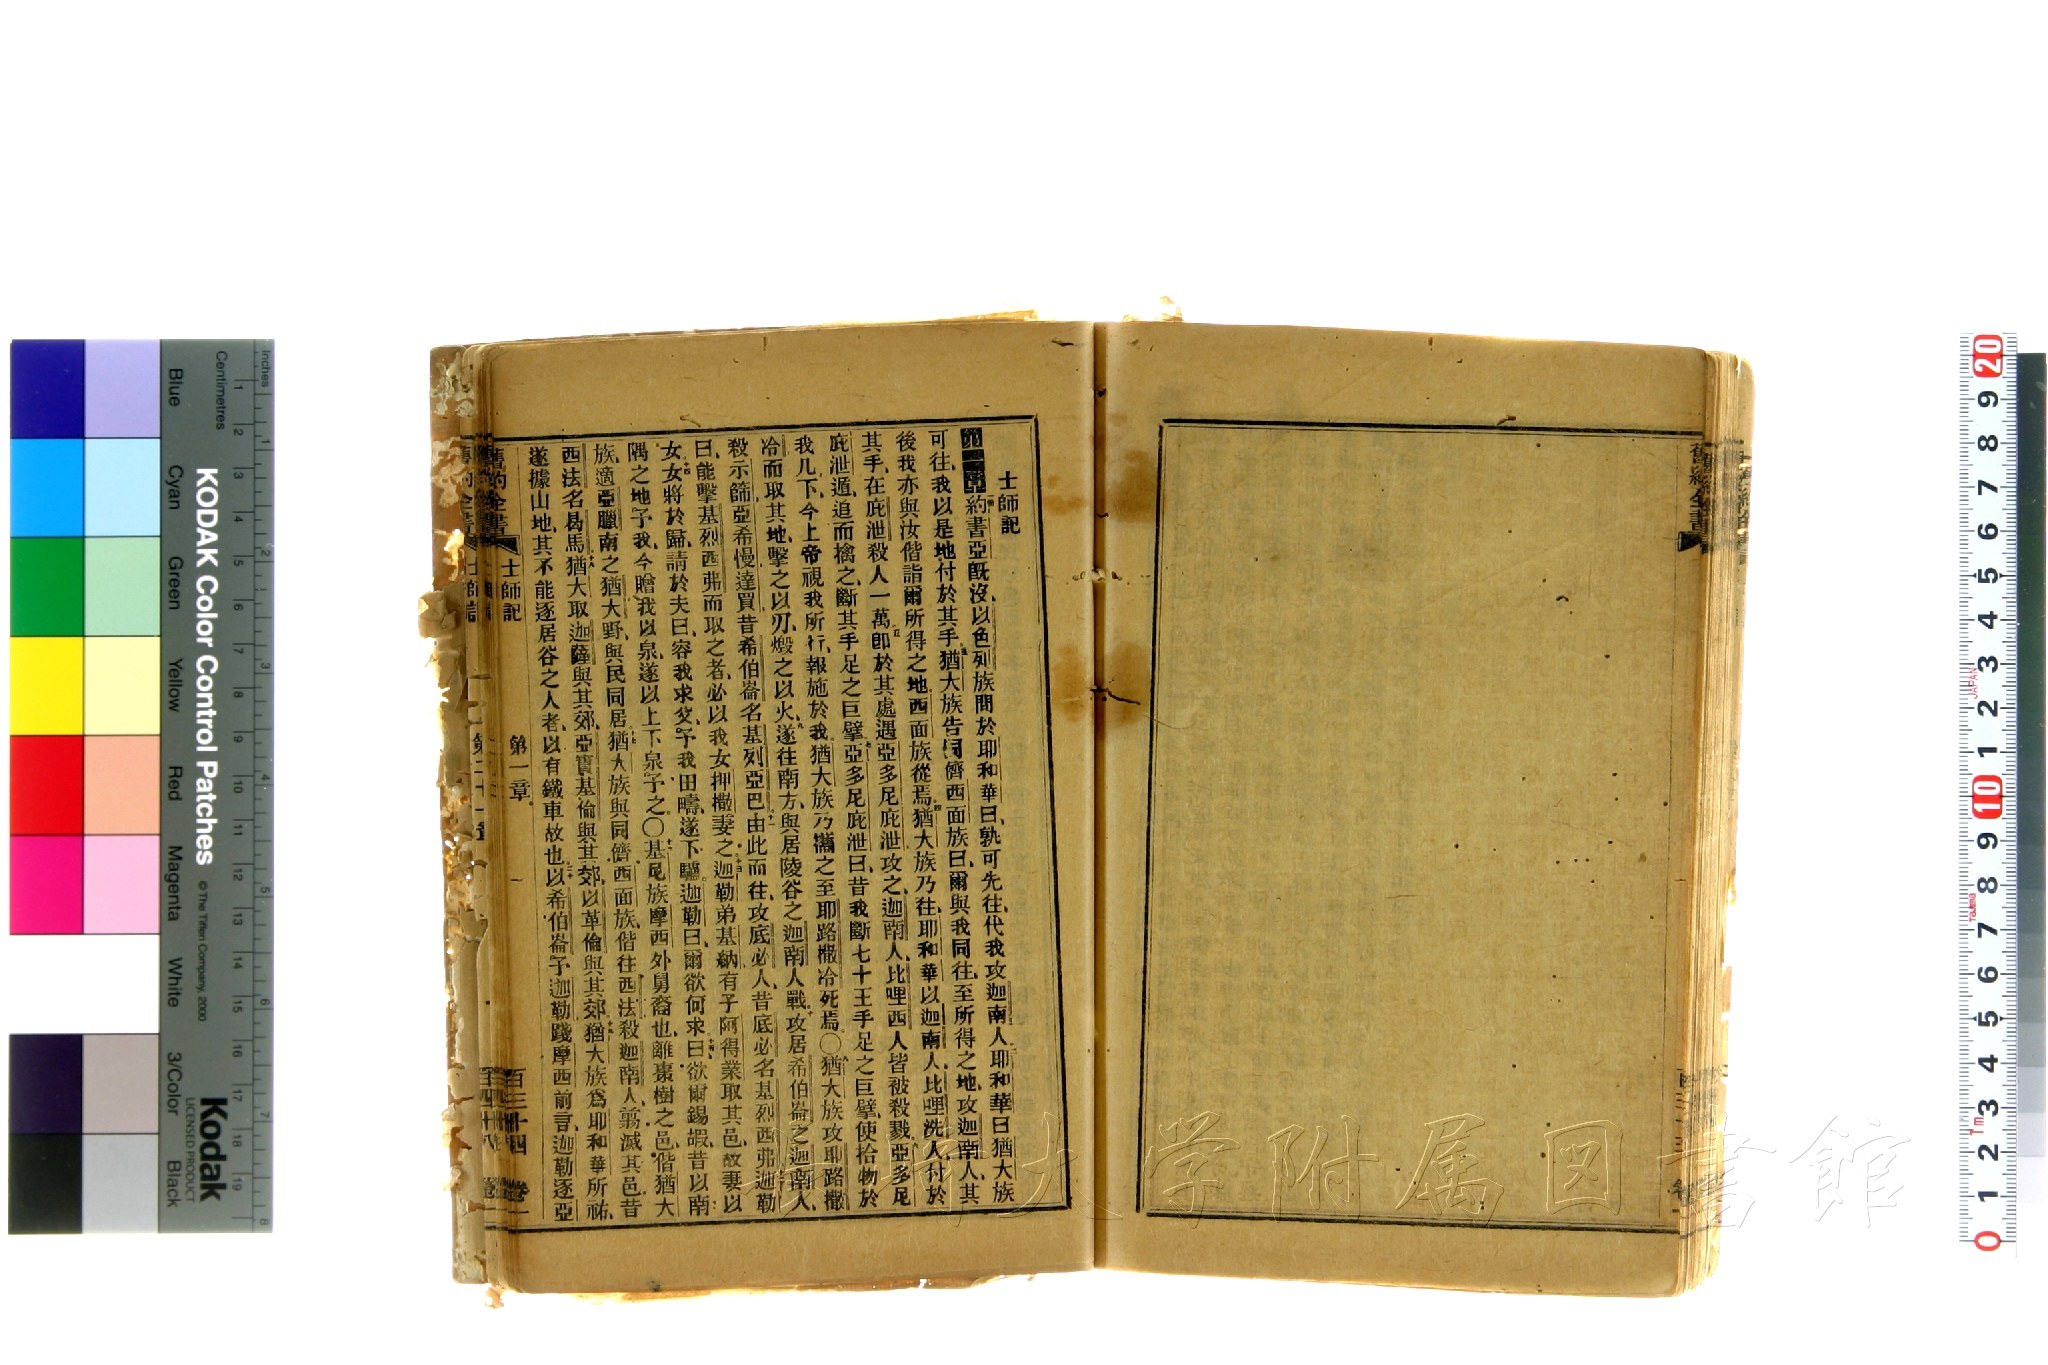 士師記
約書亞既沒、以色列族問於耶和華曰、孰可先往、代我攻迦南人、耶和華曰、猶大族
可往、我以是地付於其手、猶大族告同儕西面族曰、爾與我同往、至所得之地、攻迦南人、其
後我亦與汝偕詣爾所得之地、西面族從焉、猶大族乃往、耶和華以迦南人、比哩洗人、付於
其手、在庇泄殺人一萬、卽於其處遇亞多尼庇泄、攻之、迦南人、比哩西人皆被殺戮、亞多尼
庇泄遁、追而擒之、斷其手足之巨擘、亞多尼庇泄曰、昔我斷七十王手足之巨擘、使拾物於
我几下、今上帝視我所行、報施於我、猶大族乃攜之至耶路撒冷、死焉、〇猶大族攻耶路撒
冷而取其地、擊之以刃、燬之以火、遂往南方、與居陵谷之迦南人戰、攻居希伯崙之迦南人、
殺示篩亞希慢達買、昔希伯崙名基列亞巴、由此而往、攻底必人、昔底必名基烈西弗、迦勒
曰、能擊基烈西弗而取之者、必以我女押撒妻之、迦勒弟基納有子阿得業取其邑、故妻以
女、女將於歸、請於夫曰、容我求父予我田疇、遂下驢、迦勒曰、爾欲何求、曰、欲爾錫嘏、昔以南
隅之地予我、今贈我以泉、遂以上下泉予之、〇基尼族摩西外舅裔也、離棗樹之邑、偕猶大
族、適亞臘南之猶大野、與民同居、猶大族與同儕西面族、偕往西法、殺迦南人、翦滅其邑、昔
西法名曷馬、猶大取迦薩與其郊、亞實基倫與其郊、以革倫與其郊、猶大族爲耶和華所祐、
遂據山地、其不能逐居谷之人者、以有鐵車故也、以希伯崙予迦勒、踐摩西前言、迦勒逐亞
舊約全書 士師記 第一章 百三十四 卷二
KODAK Color Control Patches
© The Tiffen Company, 2000
Kodak
LICENSED PRODUCT
Inches
Centimetres
Blue
Cyan
Green
Yellow
Red
Magenta
White
3/Color
Black
大学附属図書館
JAPAN